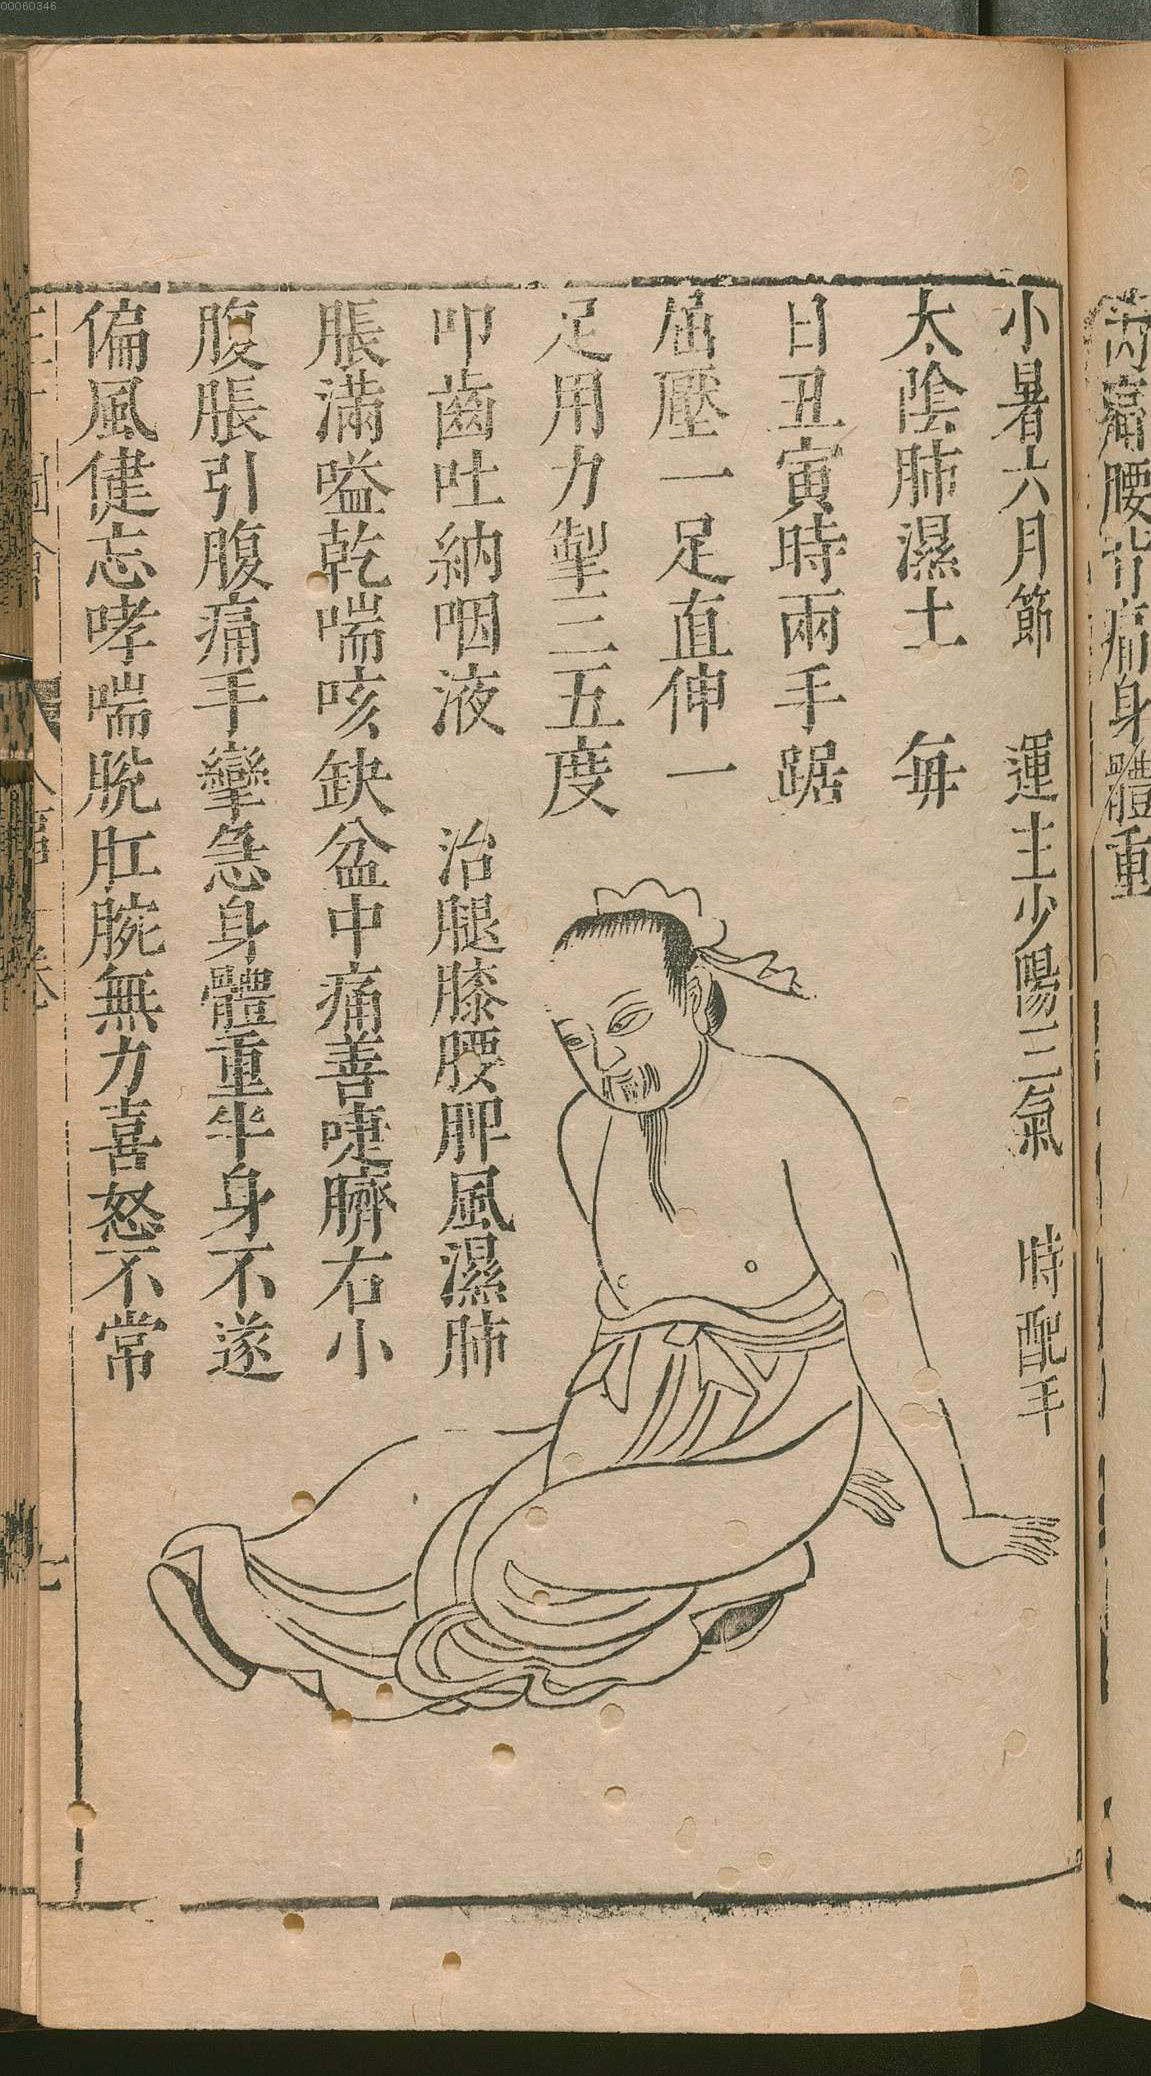 痛腰背痛身體重
小暑六月節　運主少陽三氣　時配手
太陰肺濕土　每
日丑寅時兩手踞
屈壓一足直伸一
足用力掣三五度
叩齒吐納咽液　治腿膝腰脾風濕肺
脹滿嗌乾喘咳缺盆中痛善嚏臍右小
腹脹引腹痛手攣急身體重半身不遂
偏風健忘哮喘脫肛腕無力喜怒不常
三才圖會　人事　卷　七
00060346